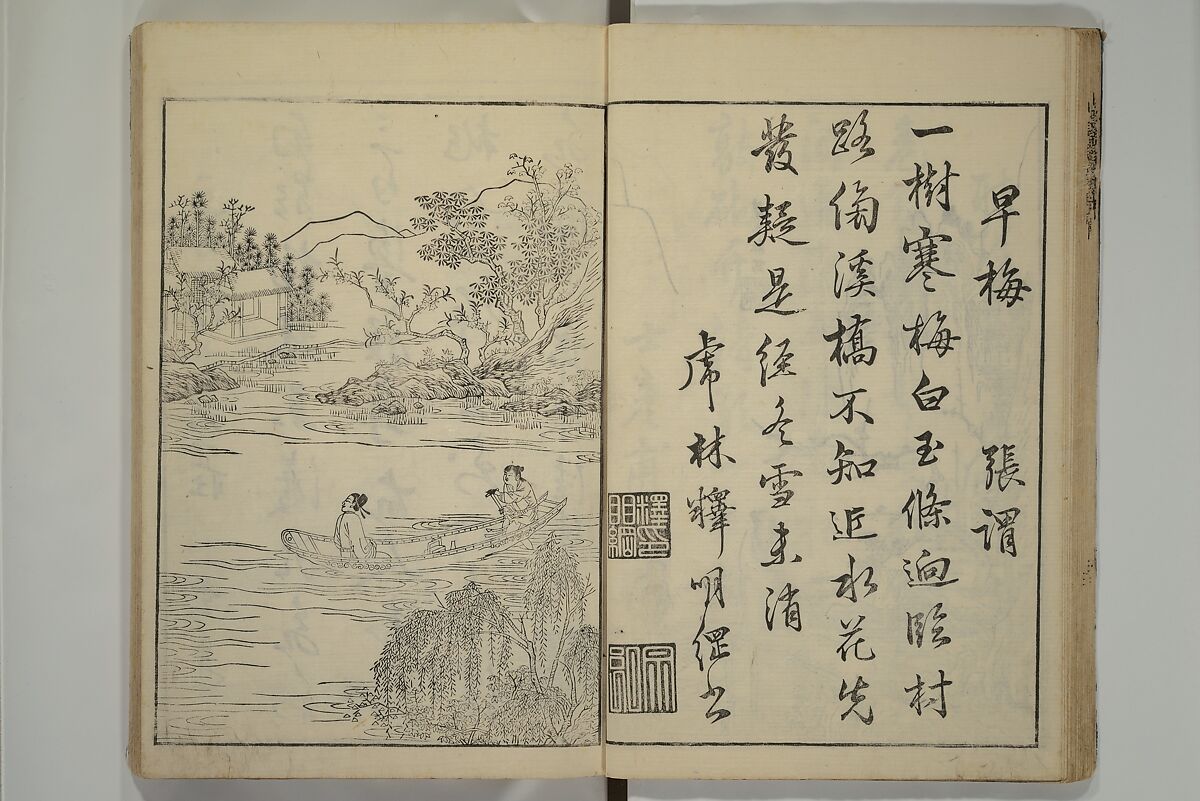 早梅 張謂
一樹寒梅白玉條逈臨村
路傍溪橋不知近水花先
發疑是經冬雪未消
虎林釋明綱書
釋印明綱